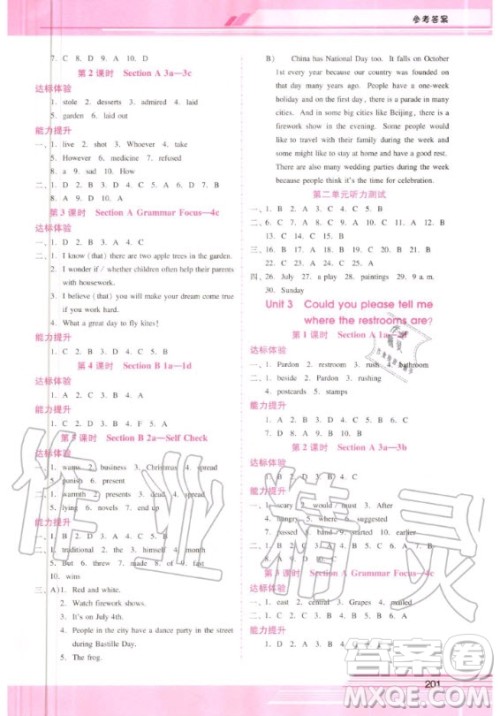 参考答案
7. C 8. B 9. A 10. D
第2课时 Section A 3a—3c
达标体验
1. stole 2. desserts 3. admired 4. laid
5. garden 6. laid out
能力提升
一、1. live 2. shot 3. Whoever 4. take
5. Following 6. medicine 7. refused
8. a 9. sad 10. How
二、1. D 2. B 3. D 4. C 5. D 6. A 7. C
8. D 9. B 10. A
第3课时 Section A Grammar Focus—4c
达标体验
一、1. D 2. B 3. B 4. A 5. C
二、1. I know (that) there are two apple trees in the garden.
2. I wonder if / whether children often help their parents
with housework.
3. I believe (that) you will make your dream come true
if you work hard.
4. What a great day to fly kites!
能力提升
1. D 2. B 3. C 4. C 5. A
第4课时 Section B 1a—1d
达标体验
1. B 2. D 3. C 4. B 5. A
能力提升
1. C 2. D 3. B 4. F 5. A
第5课时 Section B 2a—Self Check
达标体验
一、1. warns 2. business 3. Christmas 4. spread
5. present
二、1. warmth 2. presents 3. dead 4. spread
5. lying 6. novels 7. end up
能力提升
一、1. traditional 2. the 3. himself 4. match
5. But 6. threw 7. made 8. of 9. fifth
10. wins
二、A) 1. Red and white.
2. Watch firework shows.
3. It's on July 4th.
4. People in the city have a dance party in the street
during Bastille Day.
5. The frog.
B) China has National Day too. It falls on October
1st every year because our country was founded on
that day many years ago. People have a one-week
holiday and on the first day, there is a parade in many
places. And in some big cities like Beijing, there is a
firework show in the evening. Some people would like
to travel with their family during the week and
some might like to stay at home with their parents
because they think it is the time for celebration.
第二单元听力测试
一、1. B 2. A 3. A 4. C 5. B
二、6. C 7. A 8. B 9. C 10. A 11. C 12. A
13. B 14. A 15. C
三、16. B 17. A 18. B 19. C 20. B 21. B
22. A 23. C 24. A 25. C
四、26. July 27. a play 28. paintings 29. 9 a.m.
30. Sunday
Unit 3 Could you please tell me
where the restrooms are?
第1课时 Section A 1a—2d
达标体验
一、1. Pardon 2. restroom 3. rush 4. bathroom
二、1. beside 2. Pardon 3. rushing
4. postcards 5. stamps
能力提升
1. A 2. B 3. C 4. A 5. B 6. C
7. D 8. A 9. B 10. B
第2课时 Section A 3a—3b
达标体验
1. B 2. D 3. C 4. D 5. A
能力提升
一、1. scary 2. would 3. must 4. After
4. hungry 5. where 6. suggested
7. passed 8. band 9. started 10. earlier
二、1. B 2. C 3. A 4. D 5. A 6. C 7. B
8. D 9. A 10. C
第3课时 Section A Grammar Focus—4c
达标体验
一、1. east 2. central 3. Grapes 4. mailed
5. central
能力提升
一、1. D 2. B 3. A 4. C 5. B
201
作业精灵
答案圈
MXQE.COM